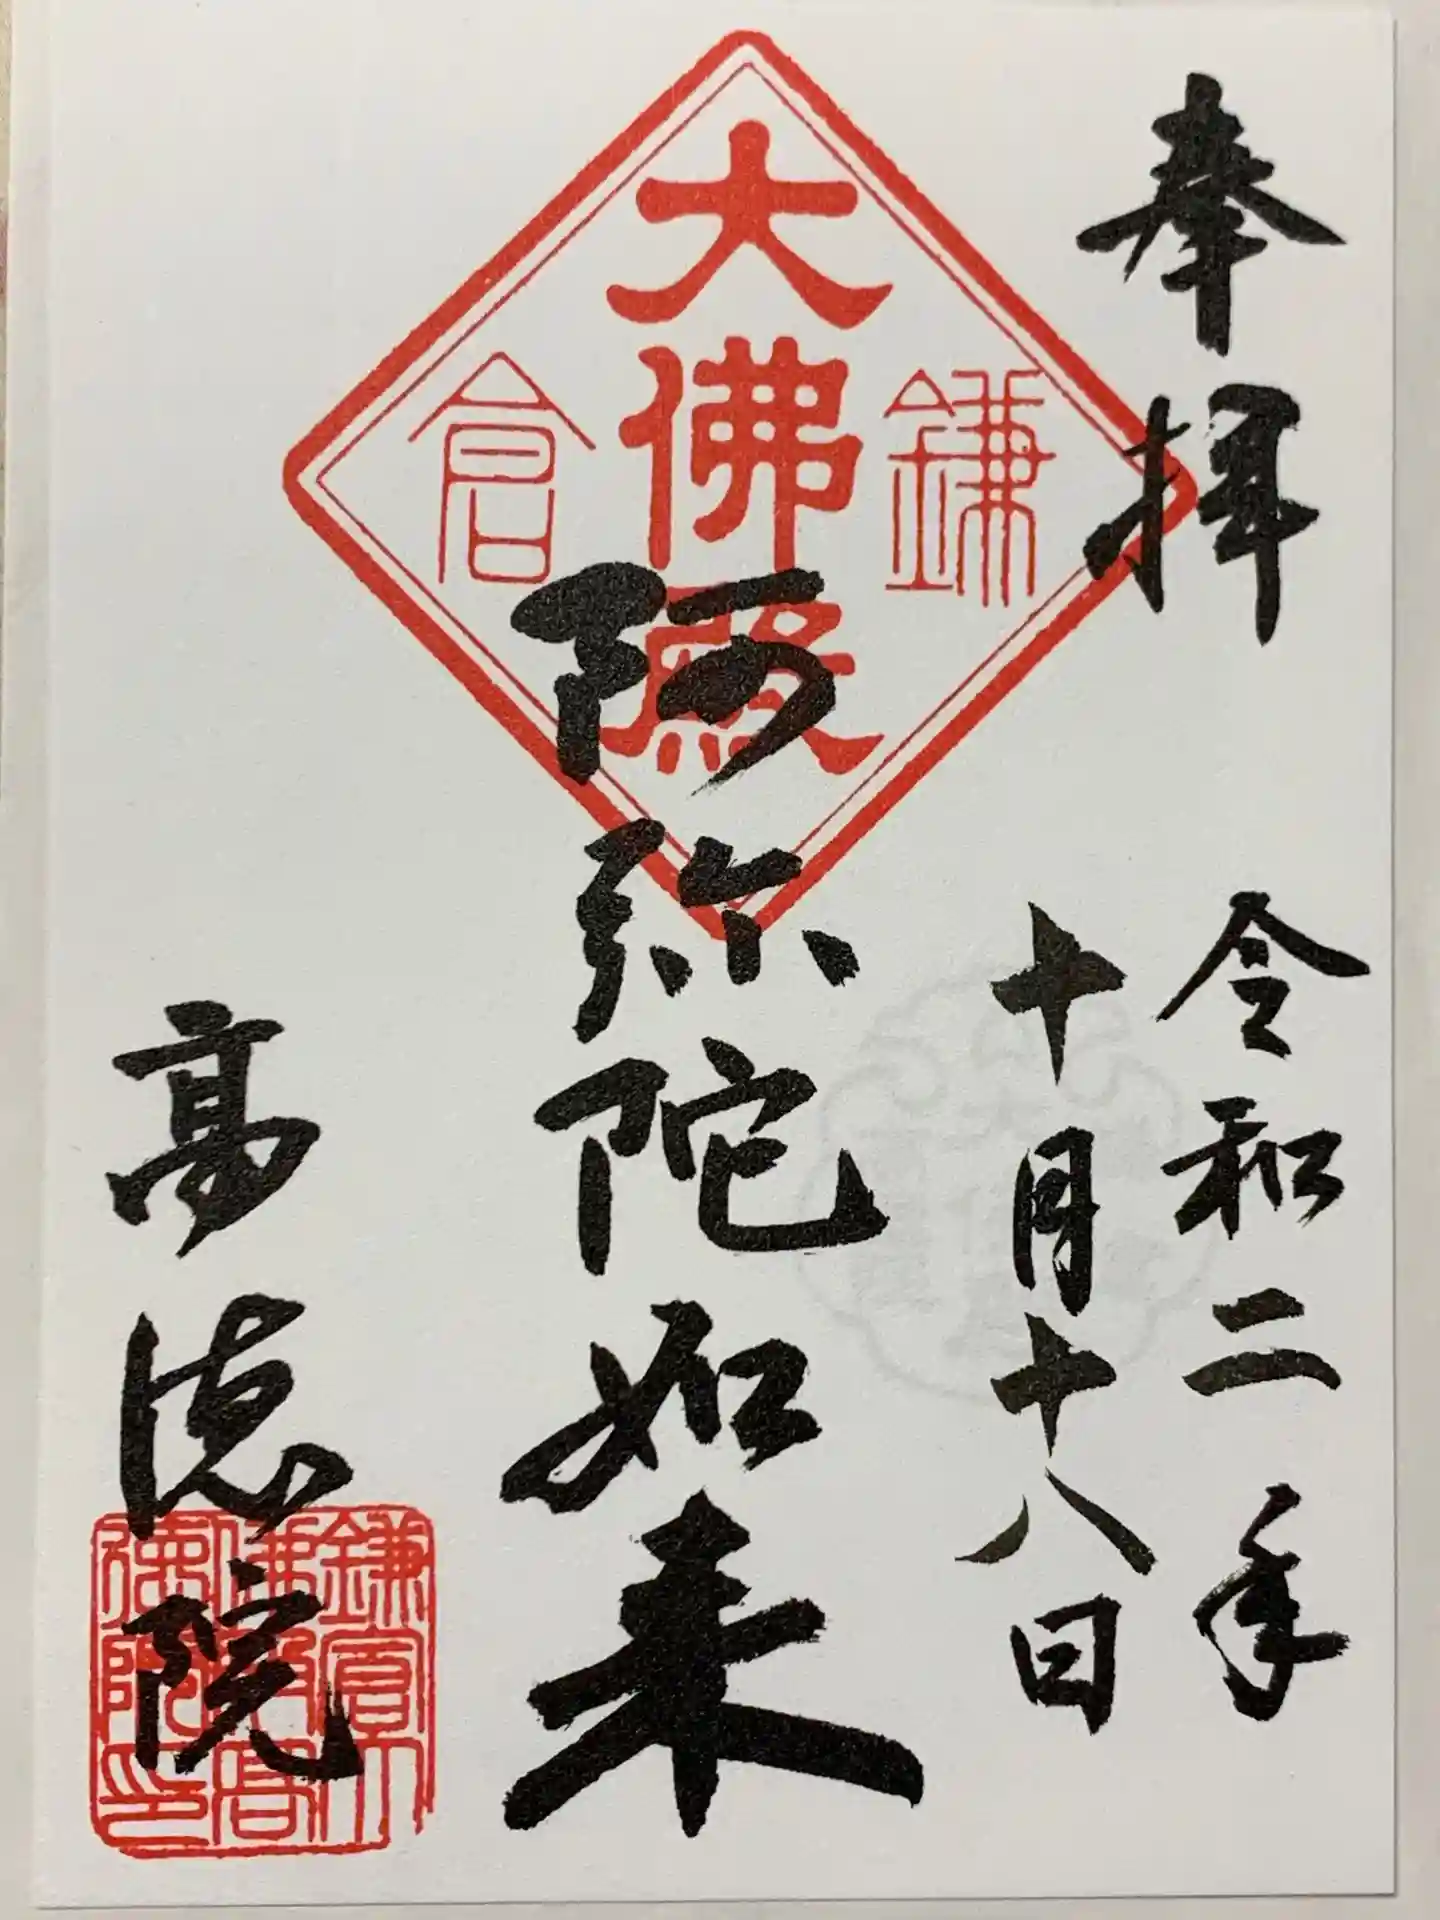 奉拝
令和二年
十月十八日
鎌倉
大佛殿
阿弥陀如来
高徳院
鎌倉大
佛殿高
徳院印